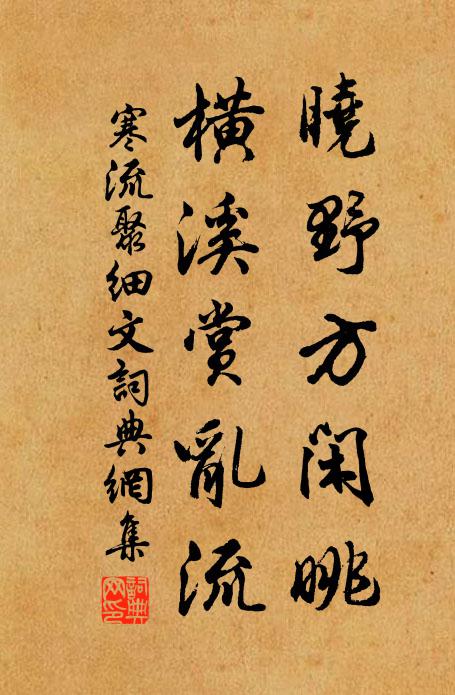 曉野方閑眺
橫溪賞亂流
寒流聚細文詞典網集
詞典
网印